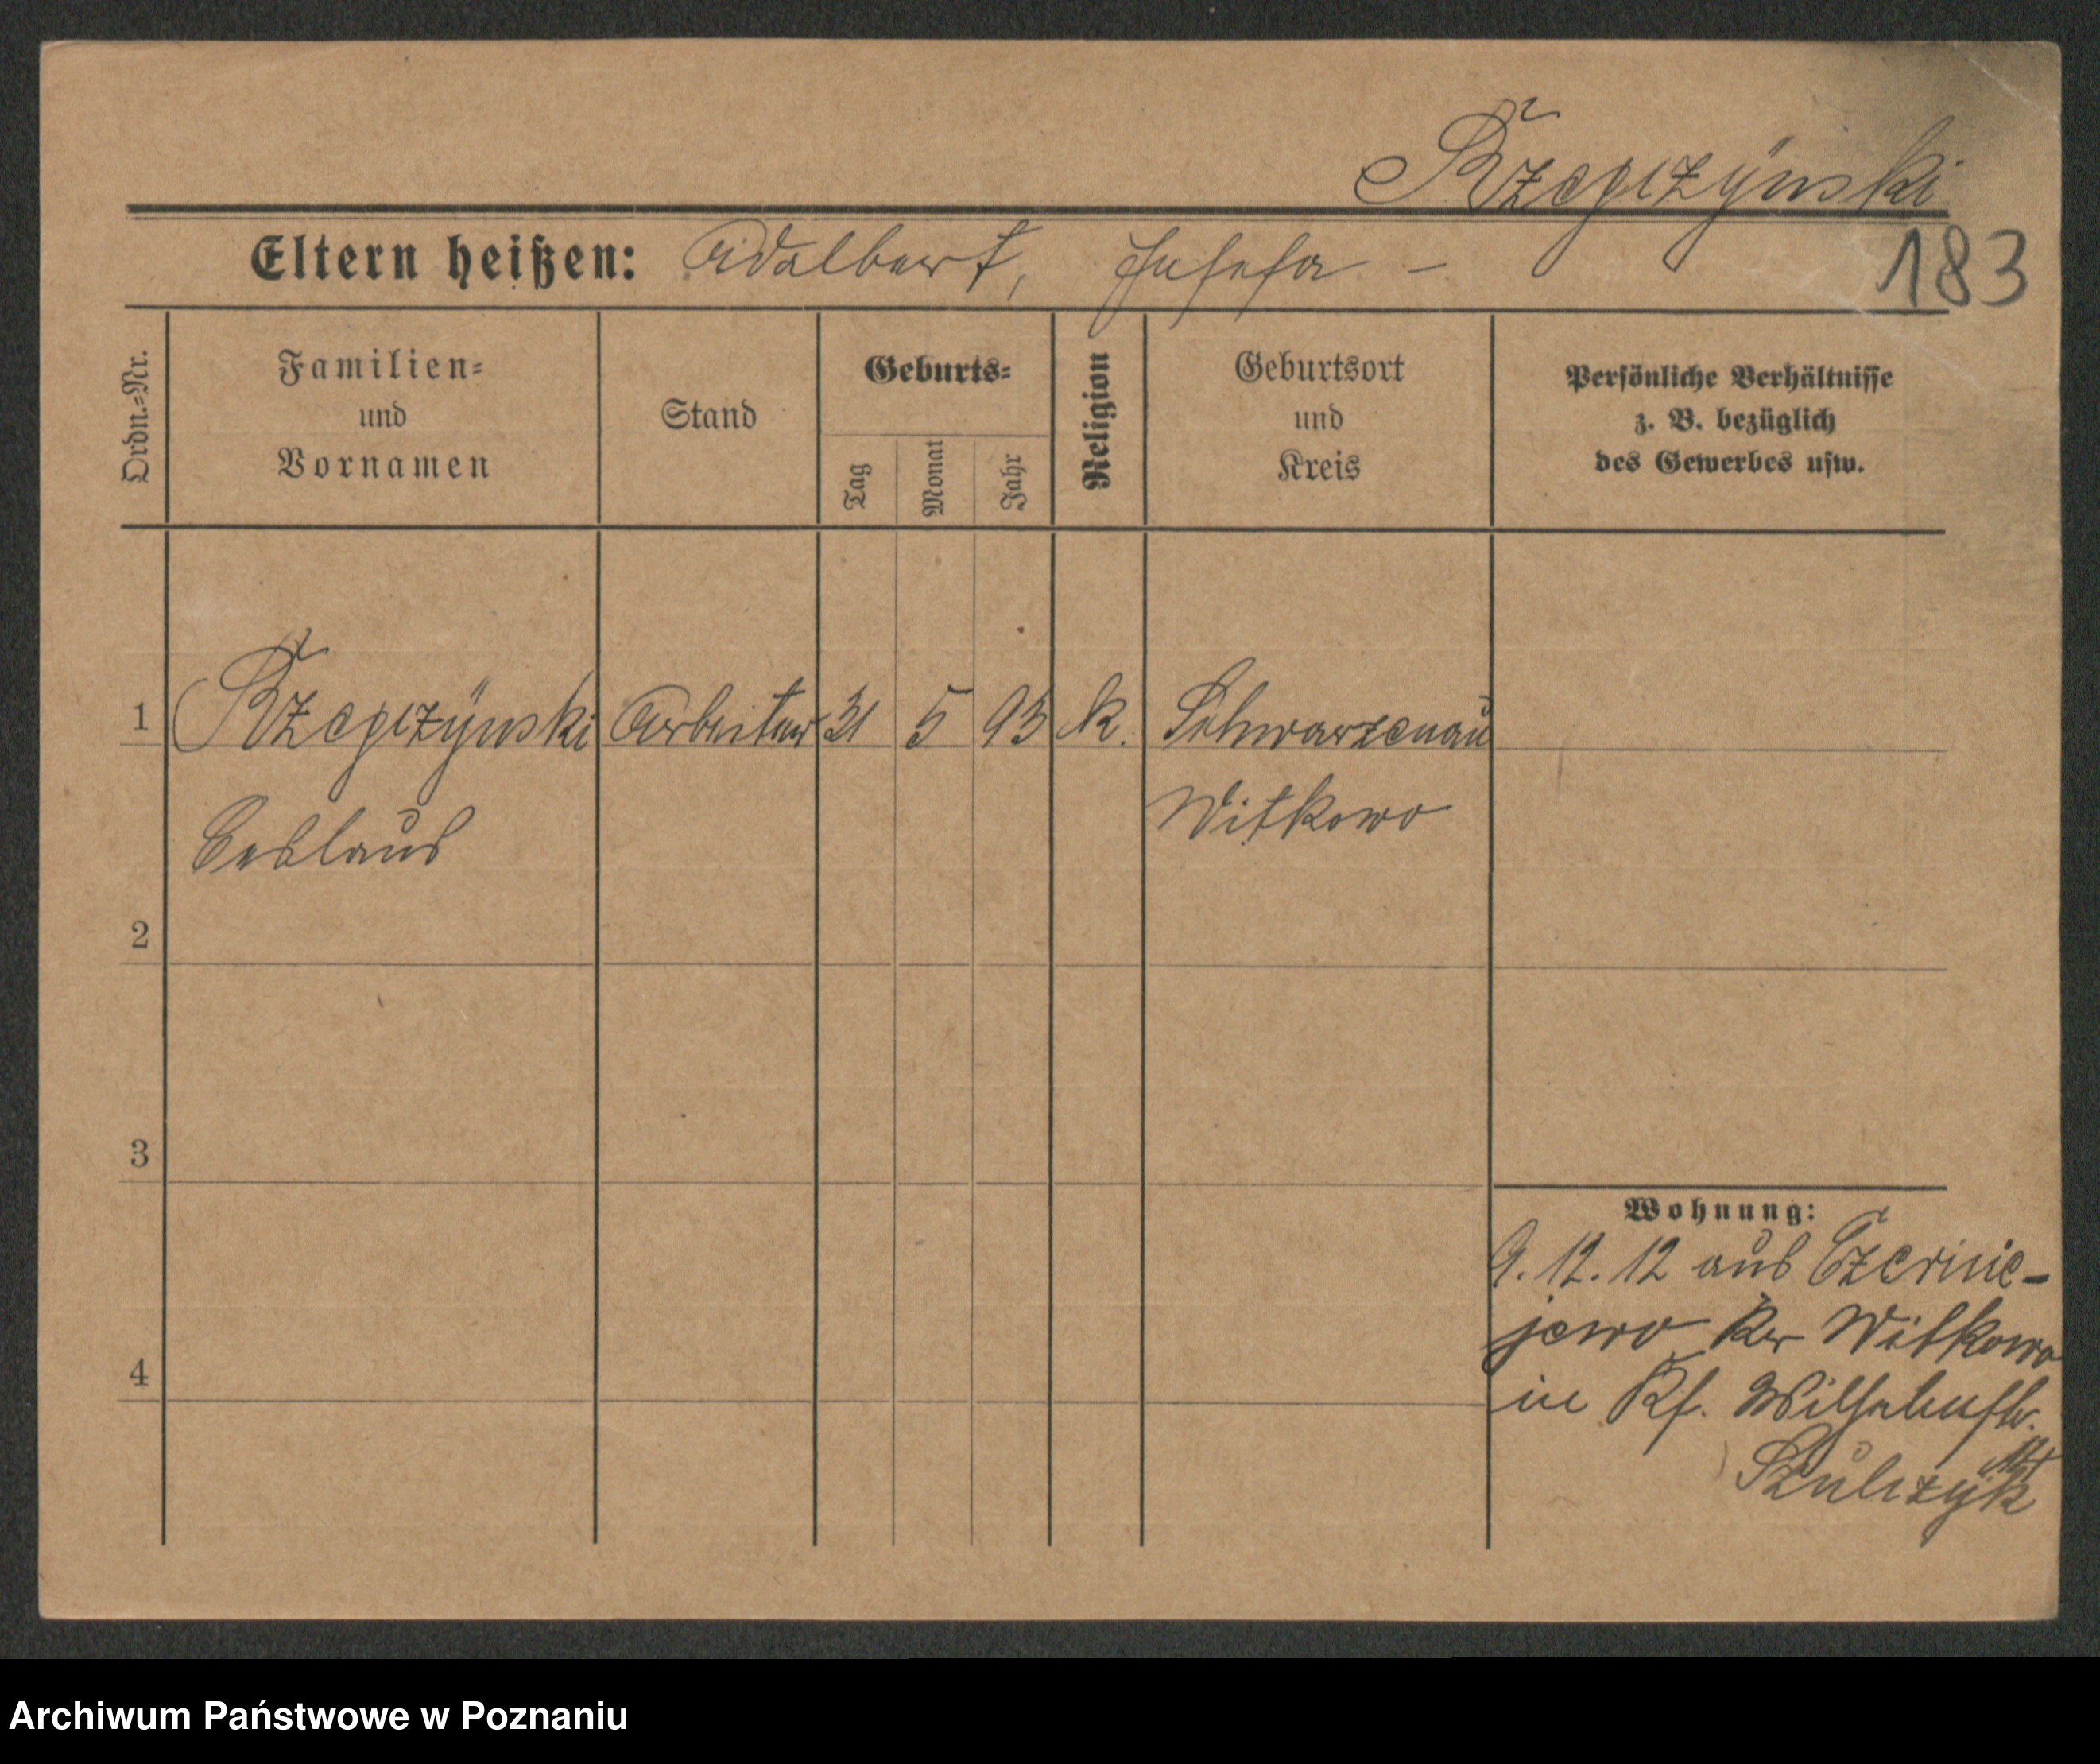 Rzepczynski
Eltern heißen: Adalbert, Josefa –
183
Ordn.=Nr.
Familien=
und
Vornamen
Stand
Geburts=
Tag
Monat
Jahr
Religion
Geburtsort
und
Kreis
Persönliche Verhältnisse
z. B. bezüglich
des Gewerbes usw.
1 Rzepczynski Arbeiter 31 5 93 k. Schwarzenau
Ceslaus Witkowo
2
3
4
Wohnung:
9. 12. 12 aus Czernie-
jewo Kr Witkowo
in Kf. Wilhelmstr.
Szulczyk
Archiwum Państwowe w Poznaniu